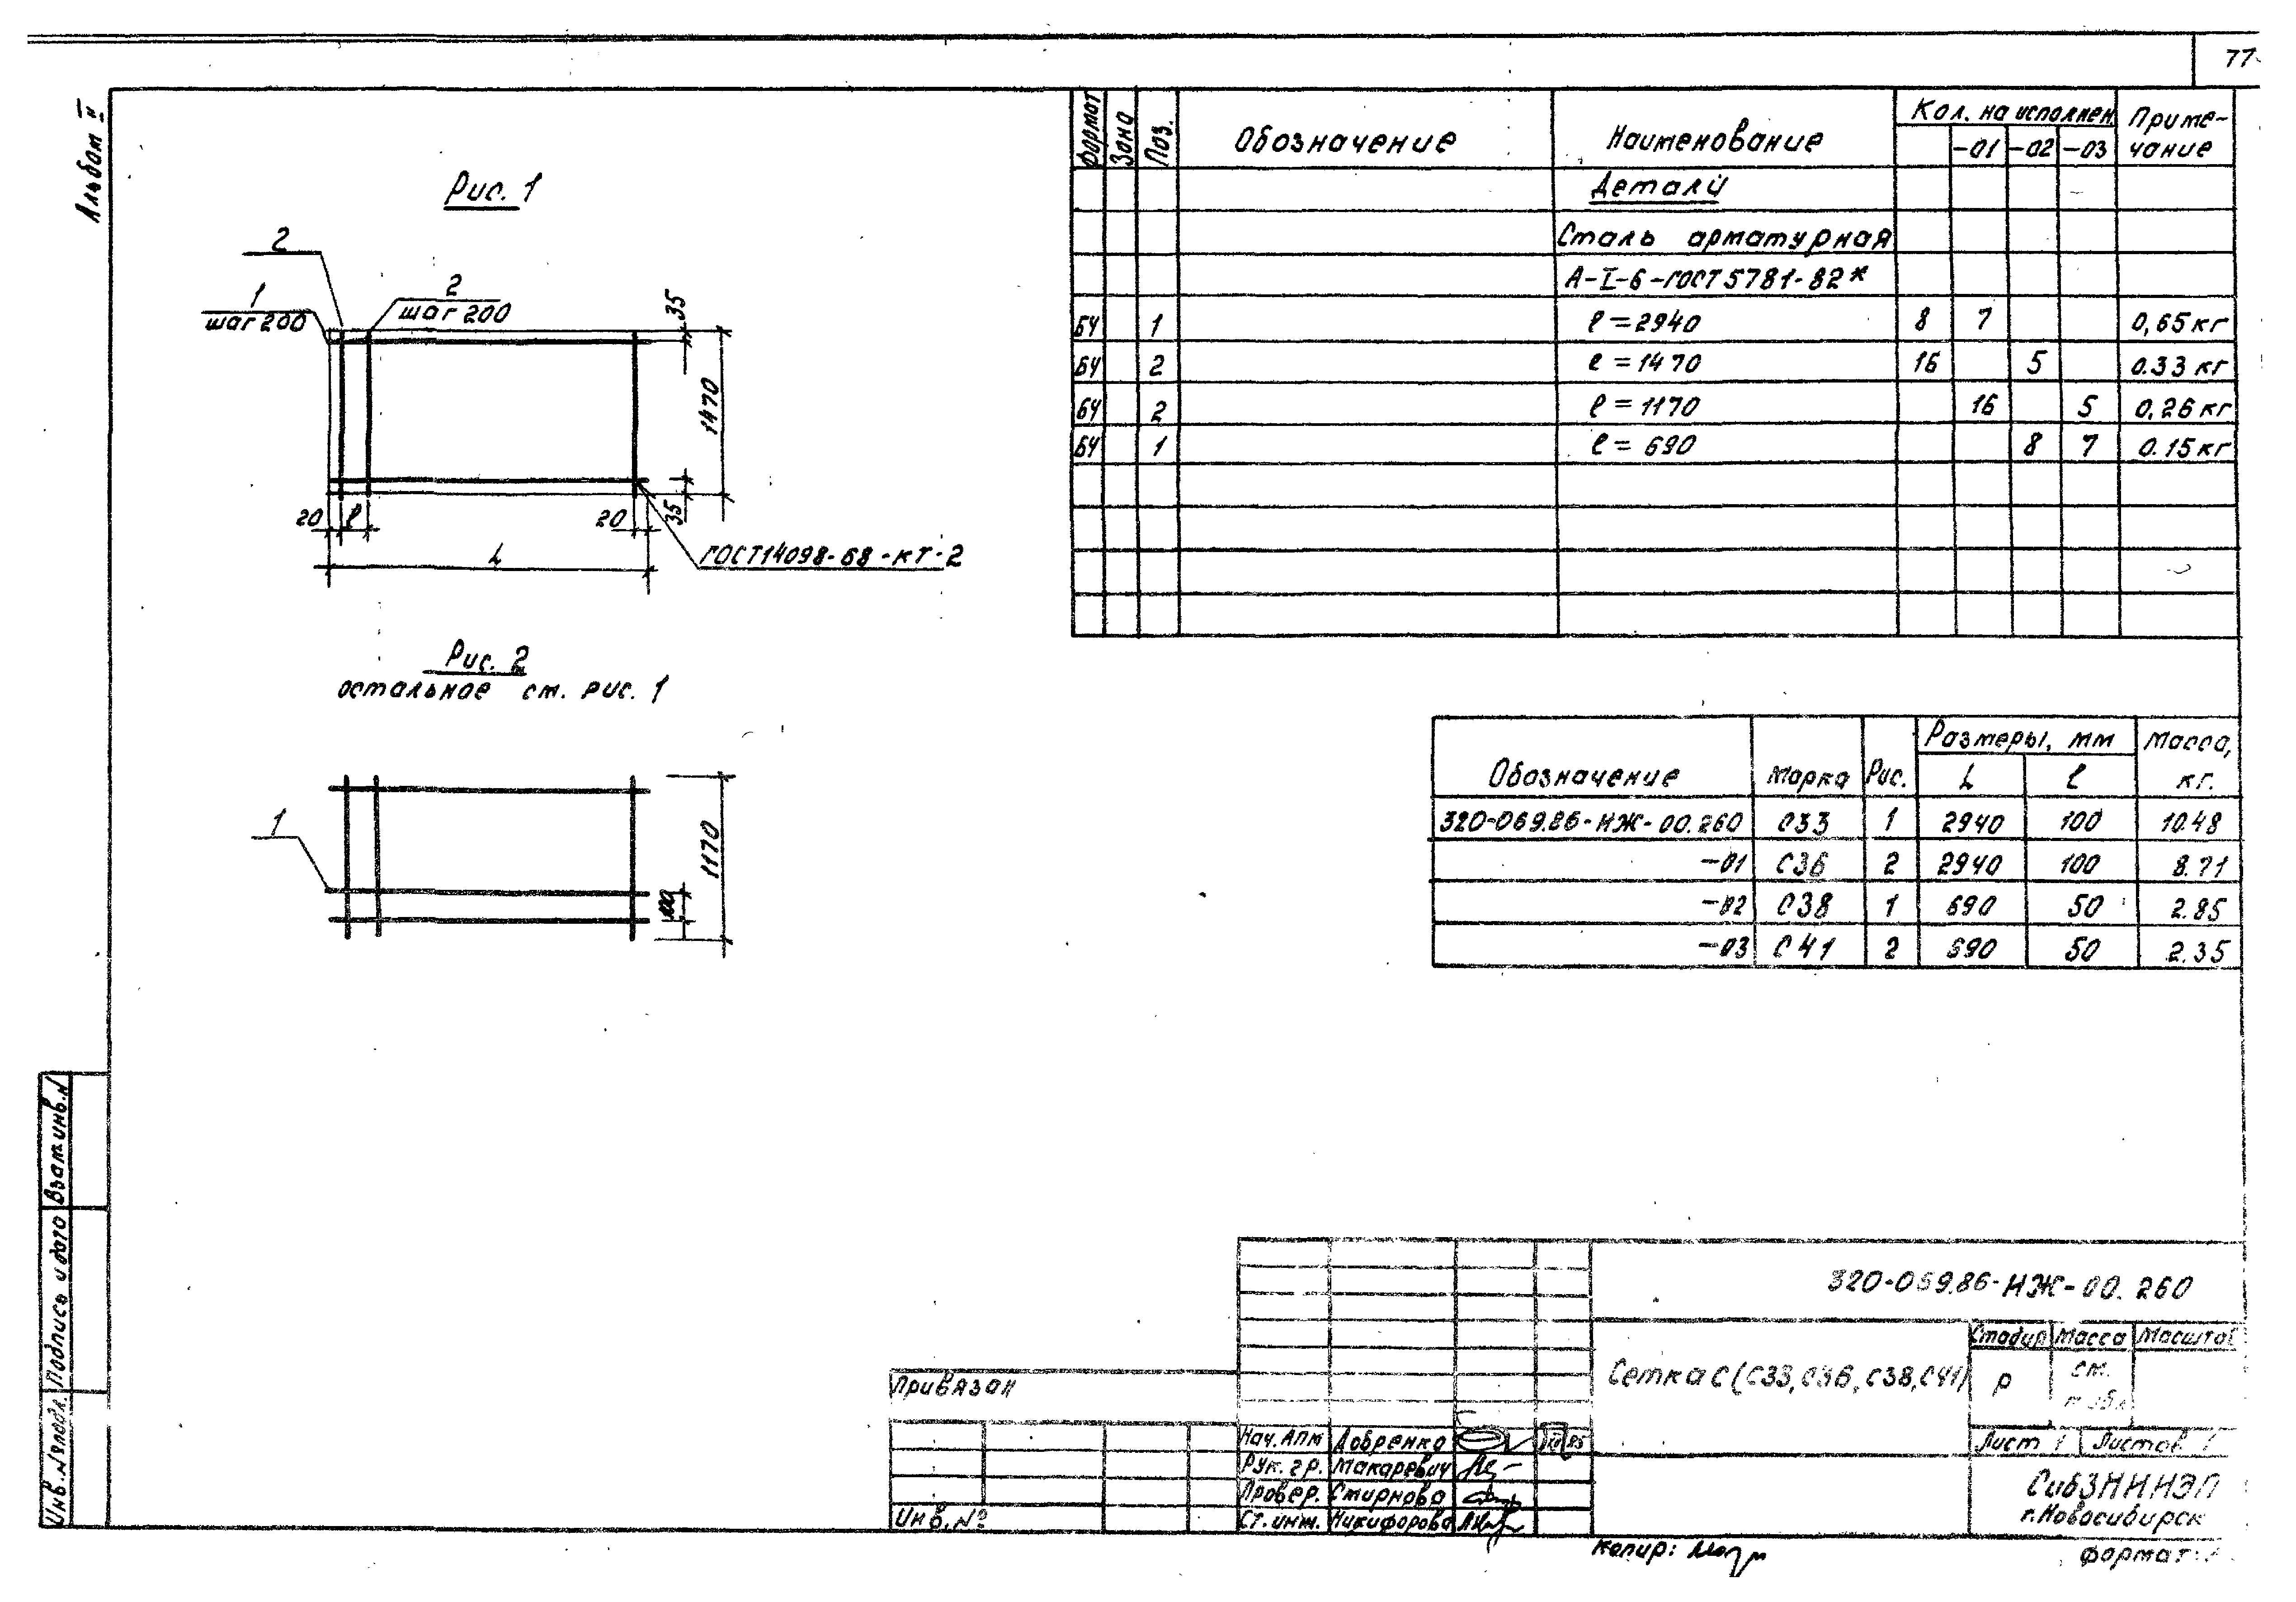 77
Альбом II
Рис. 1
2
1
шаг 200
2
шаг 200
35
1470
35
20
ℓ
20
L
ГОСТ14098-68-КТ-2
Рис. 2
остальное см. рис. 1
1
1170
100
Формат Зона Поз. Обозначение Наименование Кол. на исполнен. Приме-
-01 -02 -03 чание
Детали
Сталь арматурная
А-I-6-ГОСТ5781-82*
БЧ 1 ℓ=2940 8 7 0,65кг
БЧ 2 ℓ=1470 16 5 0.33кг
БЧ 2 ℓ=1170 16 5 0,26кг
БЧ 1 ℓ=690 8 7 0.15кг
Обозначение Марка Рис. Размеры, мм Масса,
L ℓ кг.
320-069.86-НЖ-00.260 С33 1 2940 100 10.48
-01 С36 2 2940 100 8.71
-02 С38 1 690 50 2.85
-03 С41 2 690 50 2.35
Взам.инв.N
Подпись и дата
Инв.№подл.
320-069.86-НЖ-00.260
Сетка С(С33,С36,С38,С41)
Стадия Масса Масштаб
Р см.
табл
Лист 1 Листов 1
СибЗНИИЭП
г.Новосибирск
Привязан
Инв.№
Нач.АПМ Добренко
Рук.гр. Макаревич
Провер. Смирнова
Ст.инж. Никифорова
Копир:
Формат